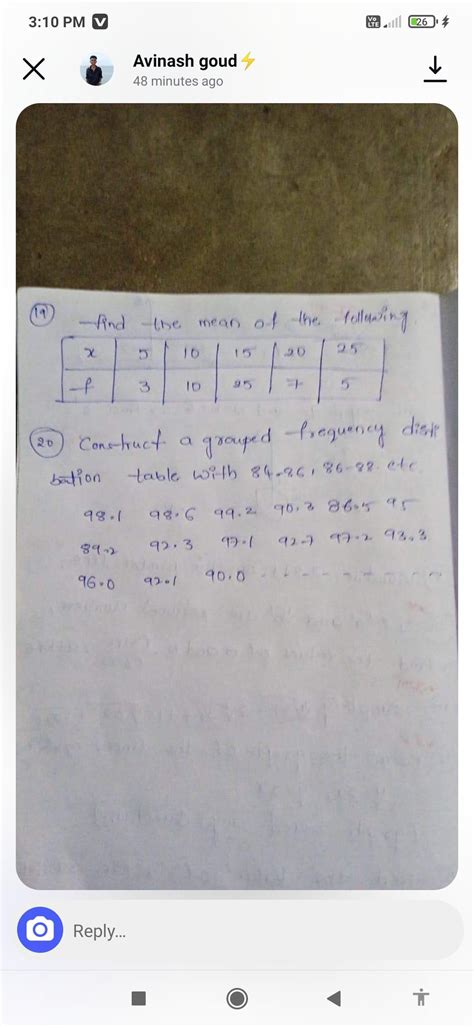 3:10 PM
Vo LTE
26
Avinash goud⚡
48 minutes ago
19 find the mean of the following.
x 5 10 15 20 25
f 3 10 25 7 5
20 Construct a grouped frequency distri
bution table with 84-86, 86-88. etc
98.1 98.6 99.2 90.3 86.5 95
89.2 92.3 97.1 92.7 97.2 93.3
96.0 92.1 90.0
Reply...